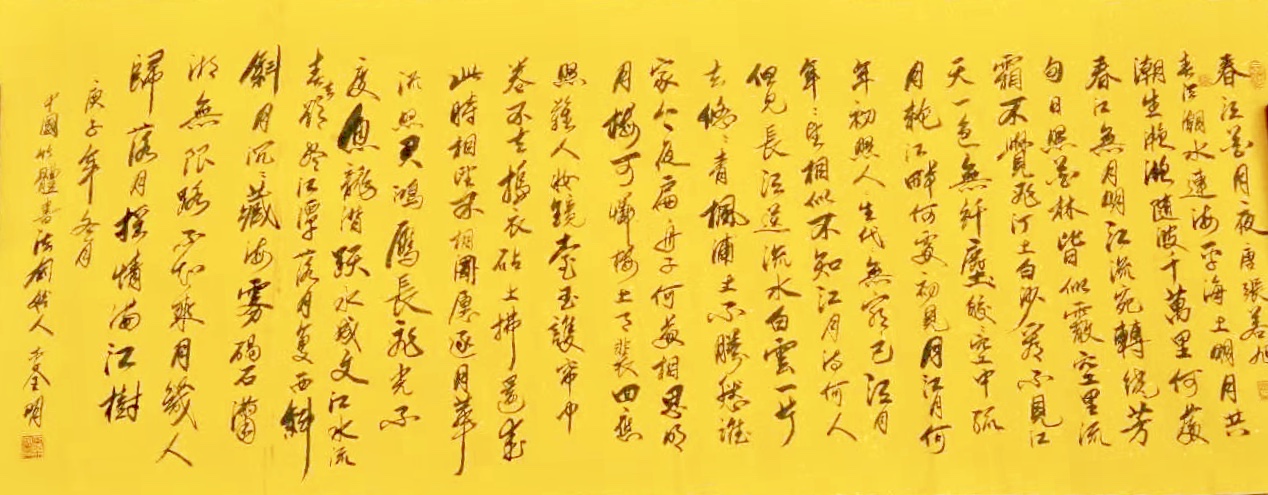 春江花月夜 唐 張若旭
春江潮水連海平海上明月共
潮生灧灧隨波千萬里何處
春江無月明江流宛轉繞芳
甸月照花林皆似霰空里流
霜不覺飛汀上白沙看不見江
天一色無纤塵皎空中孤
月輪江畔何處初見月江月何
年初照人生代無窮已江月
年年望相似不知江月待何人
但見長江送流水白雲一片
去悠悠青楓浦上不勝愁誰
家今夜扁舟子何處相思明
月樓可憐樓上月裴回應
照離人妝鏡臺玉護帘中
卷不去搗衣砧上拂還來
此時相望不相聞願逐月華
流照君鴻雁長飛光不
度魚龍潛躍水成文江水流
春去欲盡江潭落月復西斜
斜月沉沉藏海霧碣石瀟
湘無限路不知乘月幾人
歸落月搖情滿江樹
庚子年冬月
中國竹體書法創始人 明